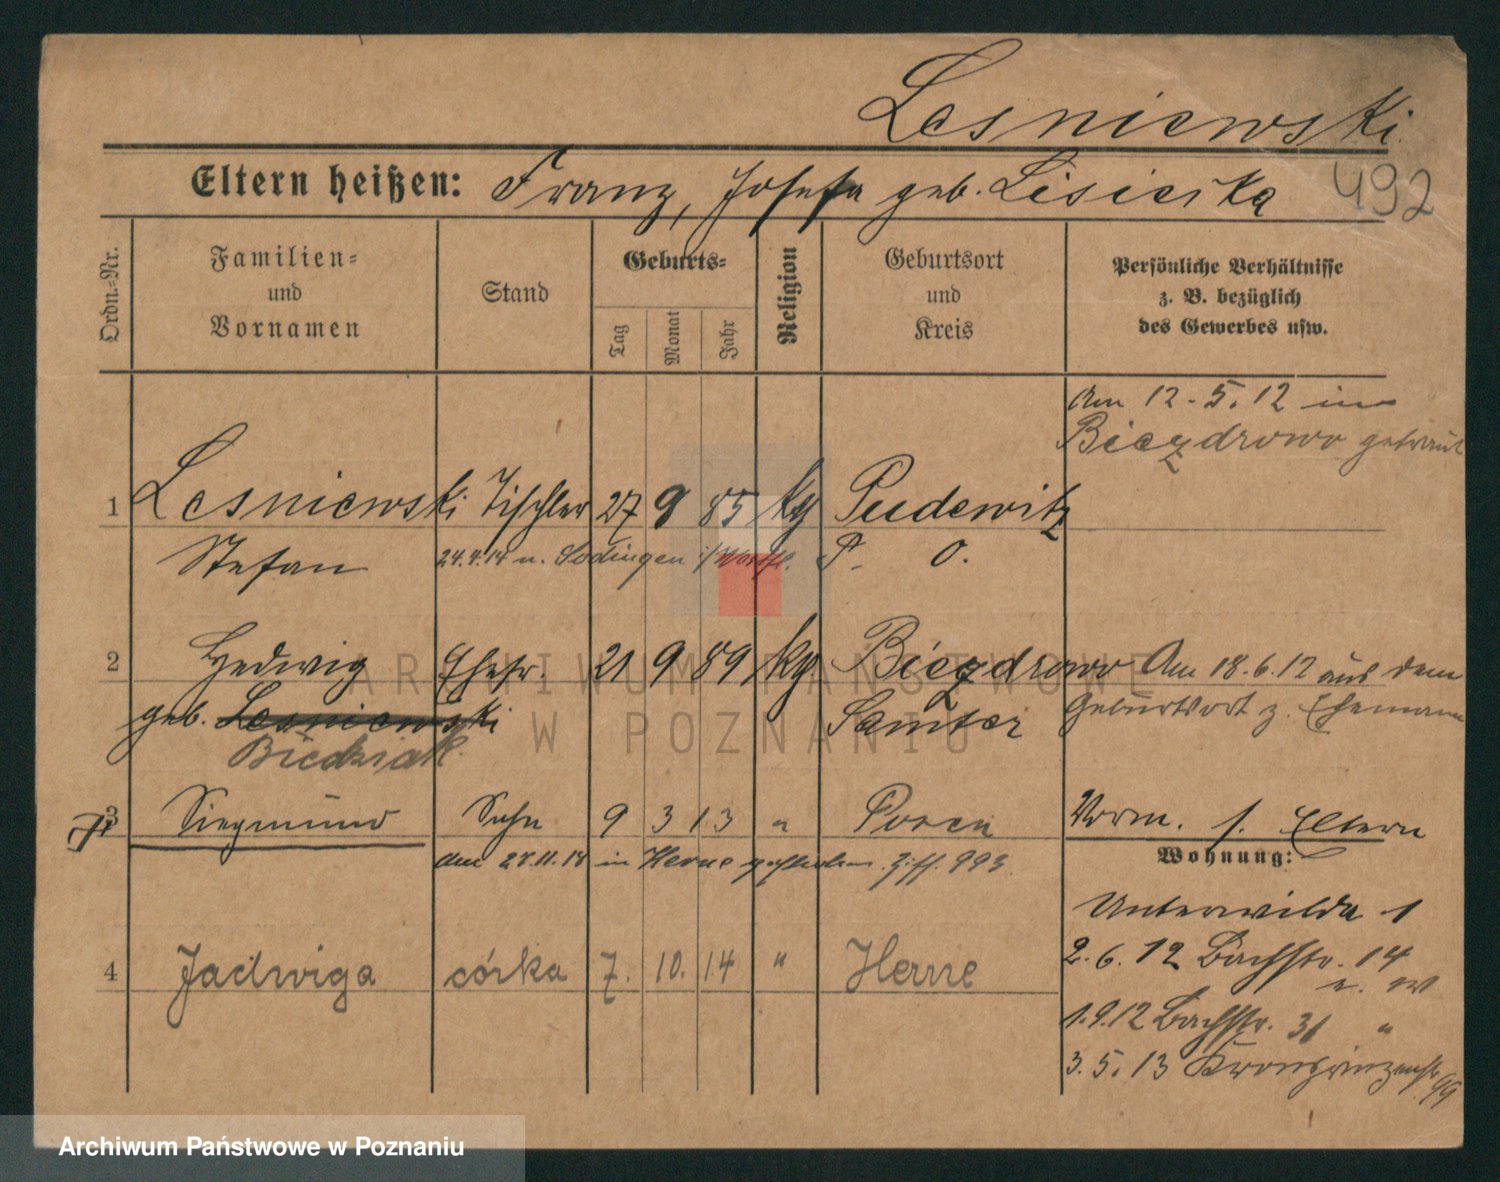 Lesniewski
Eltern heißen: Franz, Josefa geb. Lisiecka
492
Ordn.-Nr.
Familien- und Vornamen
Stand
Geburts-
Tag
Monat
Jahr
Religion
Geburtsort und Kreis
Persönliche Verhältnisse
z. B. bezüglich
des Gewerbes usw.
Am 12.5.12 in
Biezdrowo getraut
1 Lesniewski Tischler 27 9 85 kg Pudewitz
Stefan 24.4.14 n. Sodingen i/Westfl. P. O.
2 Hedwig Ehefr. 21 9 89 kg. Biezdrowo Am 18.6.12 aus dem
geb. Lesniewski Samter Geburtsort z. Ehemann
Biedziak
3 Siegmund Sohn 9 3 13 " Posen Vorm. s. Eltern
den 27.11.14 in Herne gestorben. Ziff. 993
Wohnung:
Unterwilda 1
2.6.12 Bachstr. 14
4 Jadwiga córka 7. 10. 14 " Herne
1.9.12 Bachstr. 31 "
3.5.13 Kronprinzenstr. 99
ARCHIWUM PAŃSTWOWE
W POZNANIU
Archiwum Państwowe w Poznaniu